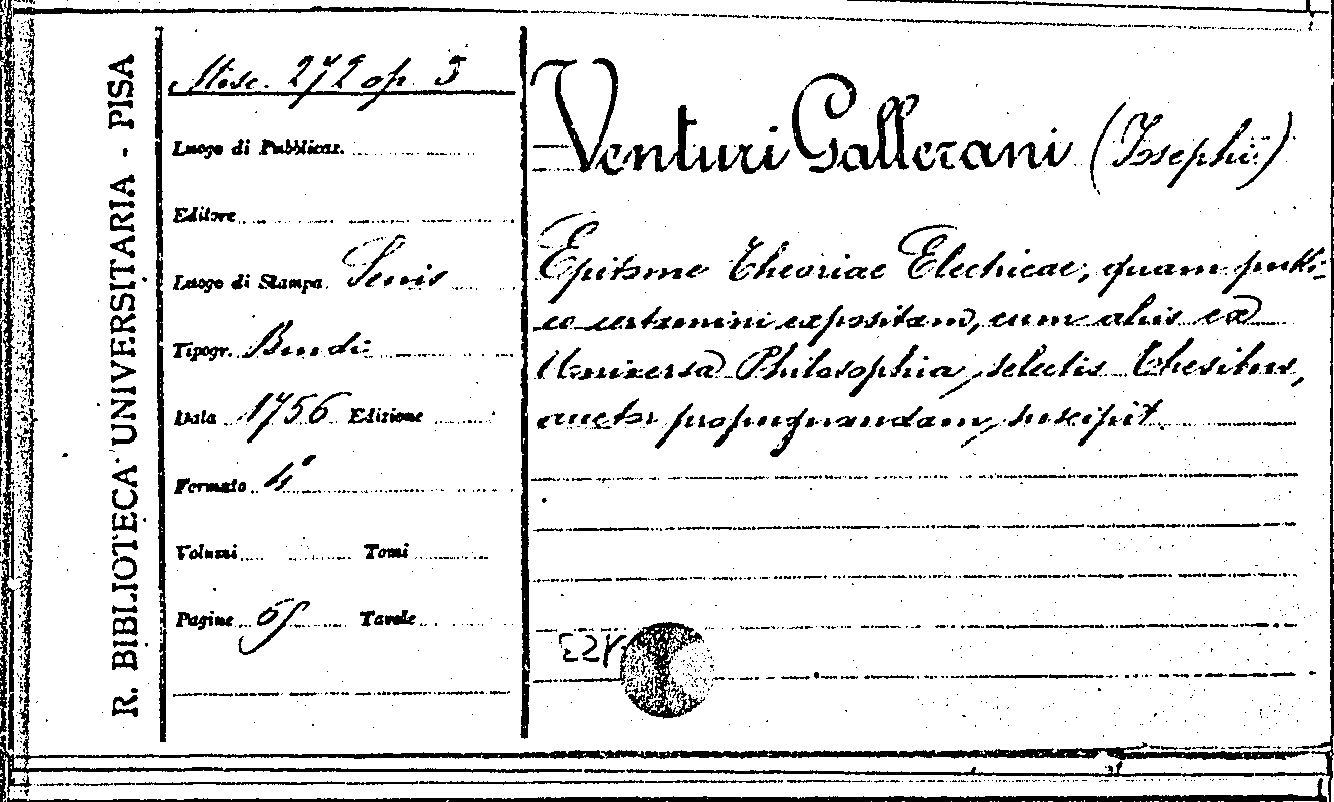 R. BIBLIOTECA UNIVERSITARIA - PISA
Misc. 272 op. 5
Luogo di Pubblicaz.
Editore
Luogo di Stampa Senis
Tipogr. Bindi
Data 1756 Edizione
Formato 4°
Volumi Tomi
Pagine Tavole
Venturi Gallerani (Josephi)
Epitome Theoriae Electricae, quam publi-
co certamini expositam, cum aliis ex
Universa Philosophia, selectis thesibus,
auctor propugnandam, suscipit.